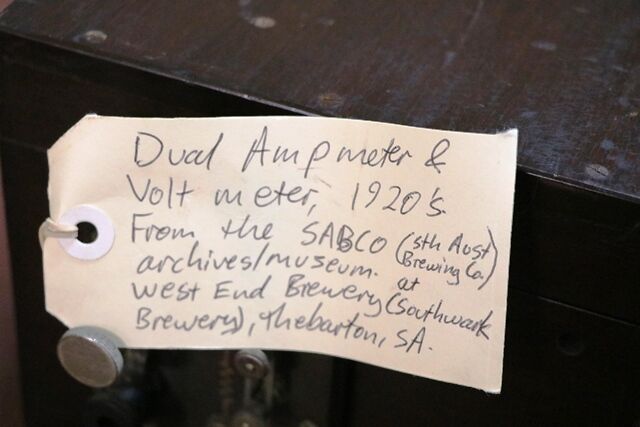 Dual Ampmeter &
Volt meter, 1920's.
From the SABCO (sth Aust
Brewing Co.)
archives/museum. at
West End Brewery (Southwark
Brewery), Thebarton, SA.